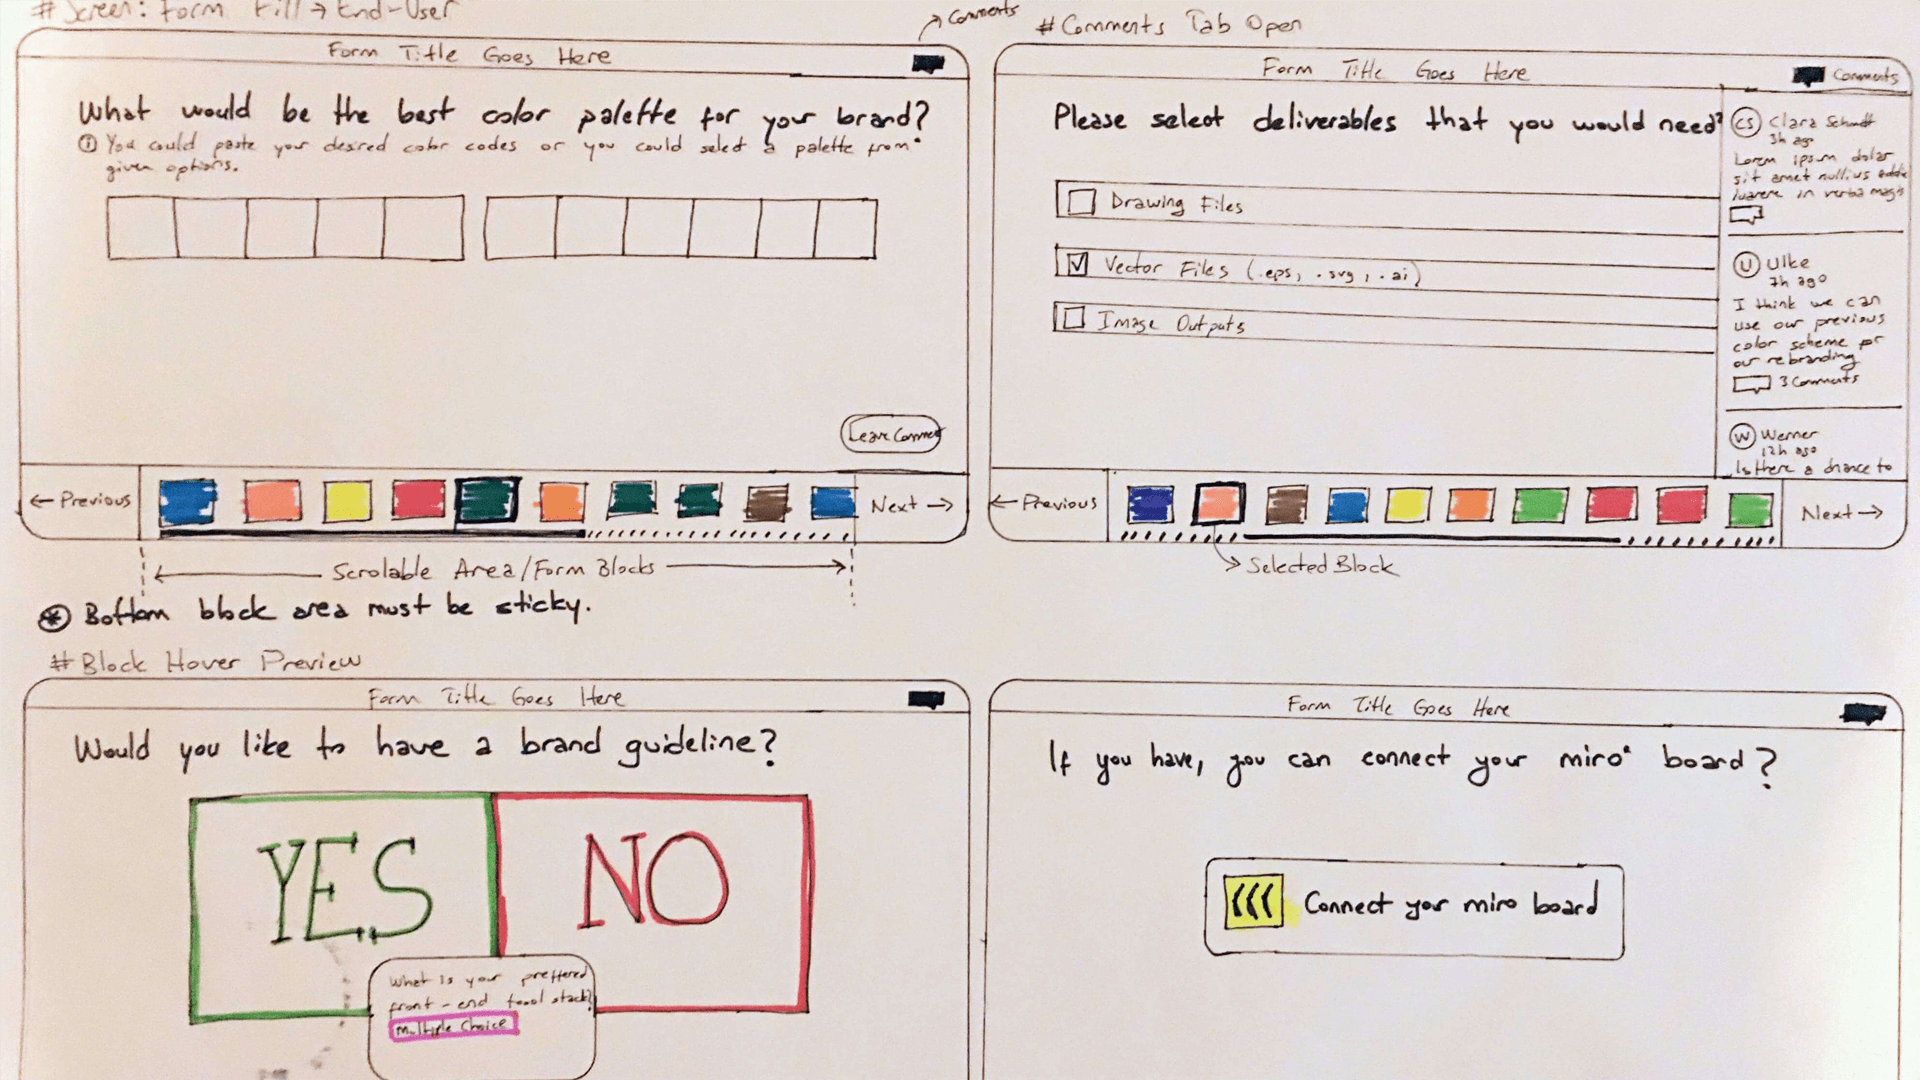 # Screen: Form Fill → End-User
→ Comments
Form Title Goes Here
What would be the best color palette for your brand?
You could paste your desired color codes or you could select a palette from
given options.
Leave Comment
← Previous
Next →
Scrolable Area/Form Blocks
* Bottom block area must be sticky.
# Comments Tab Open
Form Title Goes Here
Comments
Please select deliverables that you would need?
Drawing Files
Vector Files (.eps, .svg, .ai)
Image Outputs
CS Clara Schmdt
3h ago
Lorem ipsum dolar
sit amet nullius
in verba magis
U Ulke
7h ago
I think we can
use our previous
color scheme for
our rebranding
3 Comments
W Werner
12h ago
Is there a chance to
← Previous
Next →
Selected Block
# Block Hover Preview
Form Title Goes Here
Would you like to have a brand guideline?
YES
NO
What is your preffered
front-end tool stack?
Multiple Choice
Form Title Goes Here
If you have, you can connect your miro board?
Connect your miro board